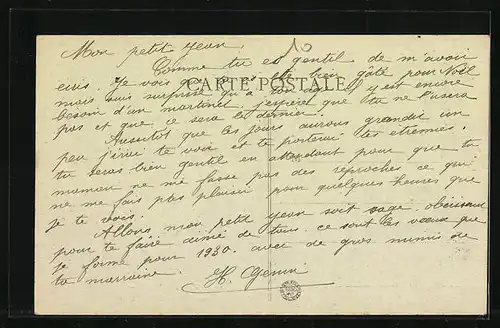 Mon petit Jean.
10
Comme tu es gentil de m'avoir
ecris. Je vois que tu as été bien gâté pour Noël
CARTE POSTALE
mais suis surprise qu'à ton âge il y est encore
besoin d'un martinet. j'espère que tu ne l'usera
pas et que ce sera le dernier.
Aussitôt que les jours aurons grandit un
peu j'irai te voir et te porterai tes étrennes.
tu seras bien gentil en attendant pour que ta
maman ne me fasse pas des reproches ce qui
ne me fais pas plaisir pour quelques heures que
je te vois.
Allons mon petit Jean soit sage obéissant
pour te faire aimé de tous. ce sont les vœux que
je forme pour 1930. avec de gros mimis de
ta marraine.
H. Genin